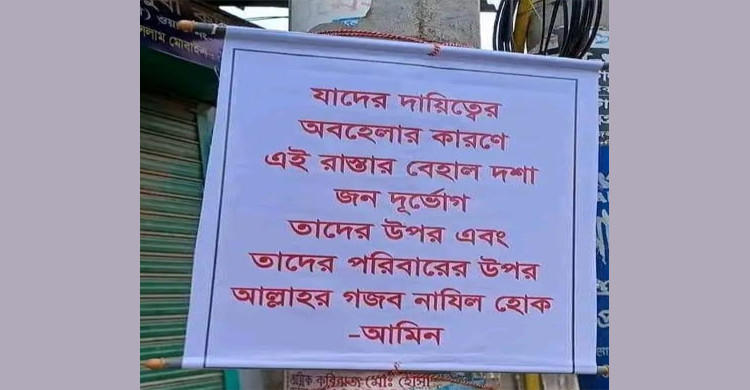 যাদের দায়িত্বের
অবহেলার কারণে
এই রাস্তার বেহাল দশা
জন দূর্ভোগ
তাদের উপর এবং
তাদের পরিবারের উপর
আল্লাহর গজব নাযিল হোক
-আমিন